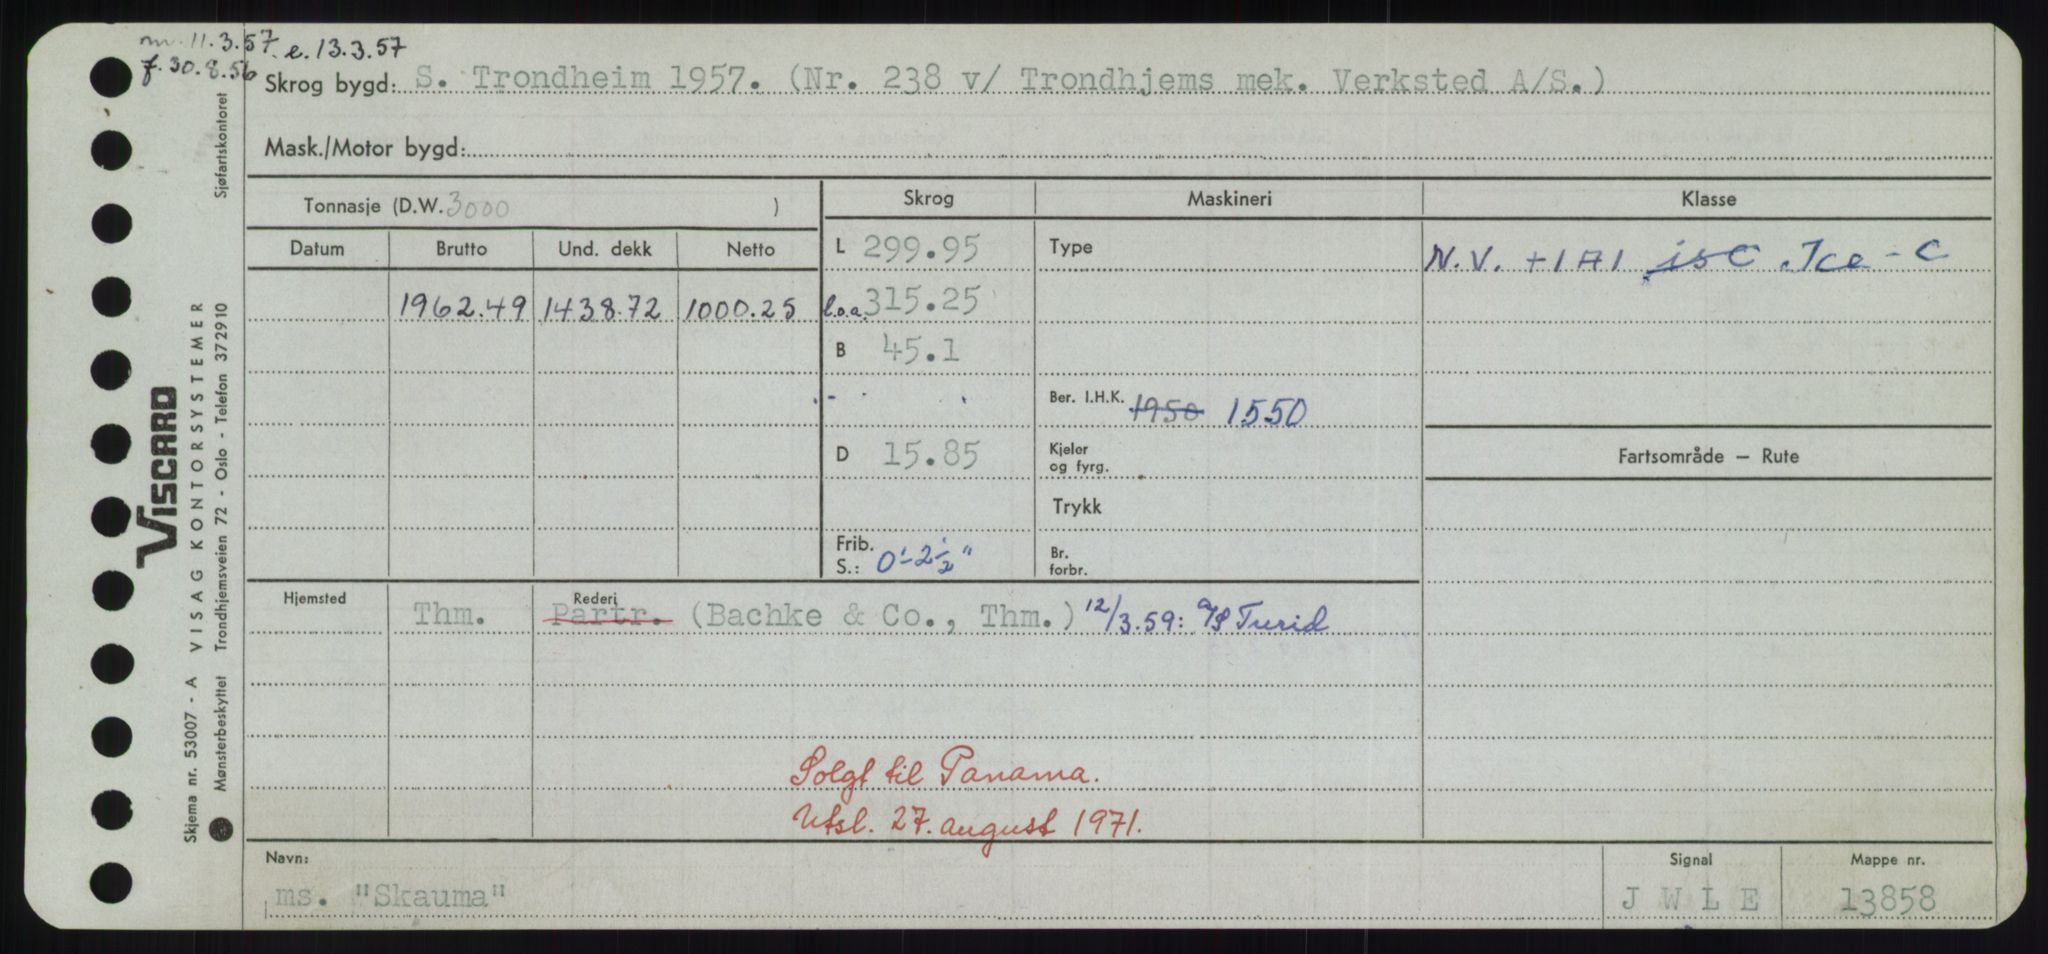 m. 11.3.57. e. 13.3.57
f. 30.8.56
Skrog bygd: S. Trondheim 1957. (Nr. 238 v/ Trondhjems mek. Verksted A/S.)
Mask./Motor bygd:
Tonnasje (D.W. 3000 )
Skrog Maskineri Klasse
Datum Brutto Und. dekk Netto
L 299.95 Type N.V. +1A1 isC Ice-C
1962.49 1438.72 1000.25 l.o.a. 315.25
B 45.1
Ber. I.H.K. 1950 1550
D 15.85 Kjeler
og fyrg.
Fartsområde – Rute
Trykk
Frib.
S.: 0'-2½"
Br.
forbr.
Hjemsted Thm. Rederi Partr. (Bachke & Co., Thm.) 12/3.59: A/S Turid
Solgt til Panama.
Utsl. 27. august 1971.
Navn: Signal Mappe nr.
ms. "Skauma" J W L E 13858
Sjøfartskontoret
VISCARD
VISAG KONTORSYSTEMER
Trondhjemsveien 72 - Oslo - Telefon 372910
Skjema nr. 53007 - A
Mønsterbeskyttet